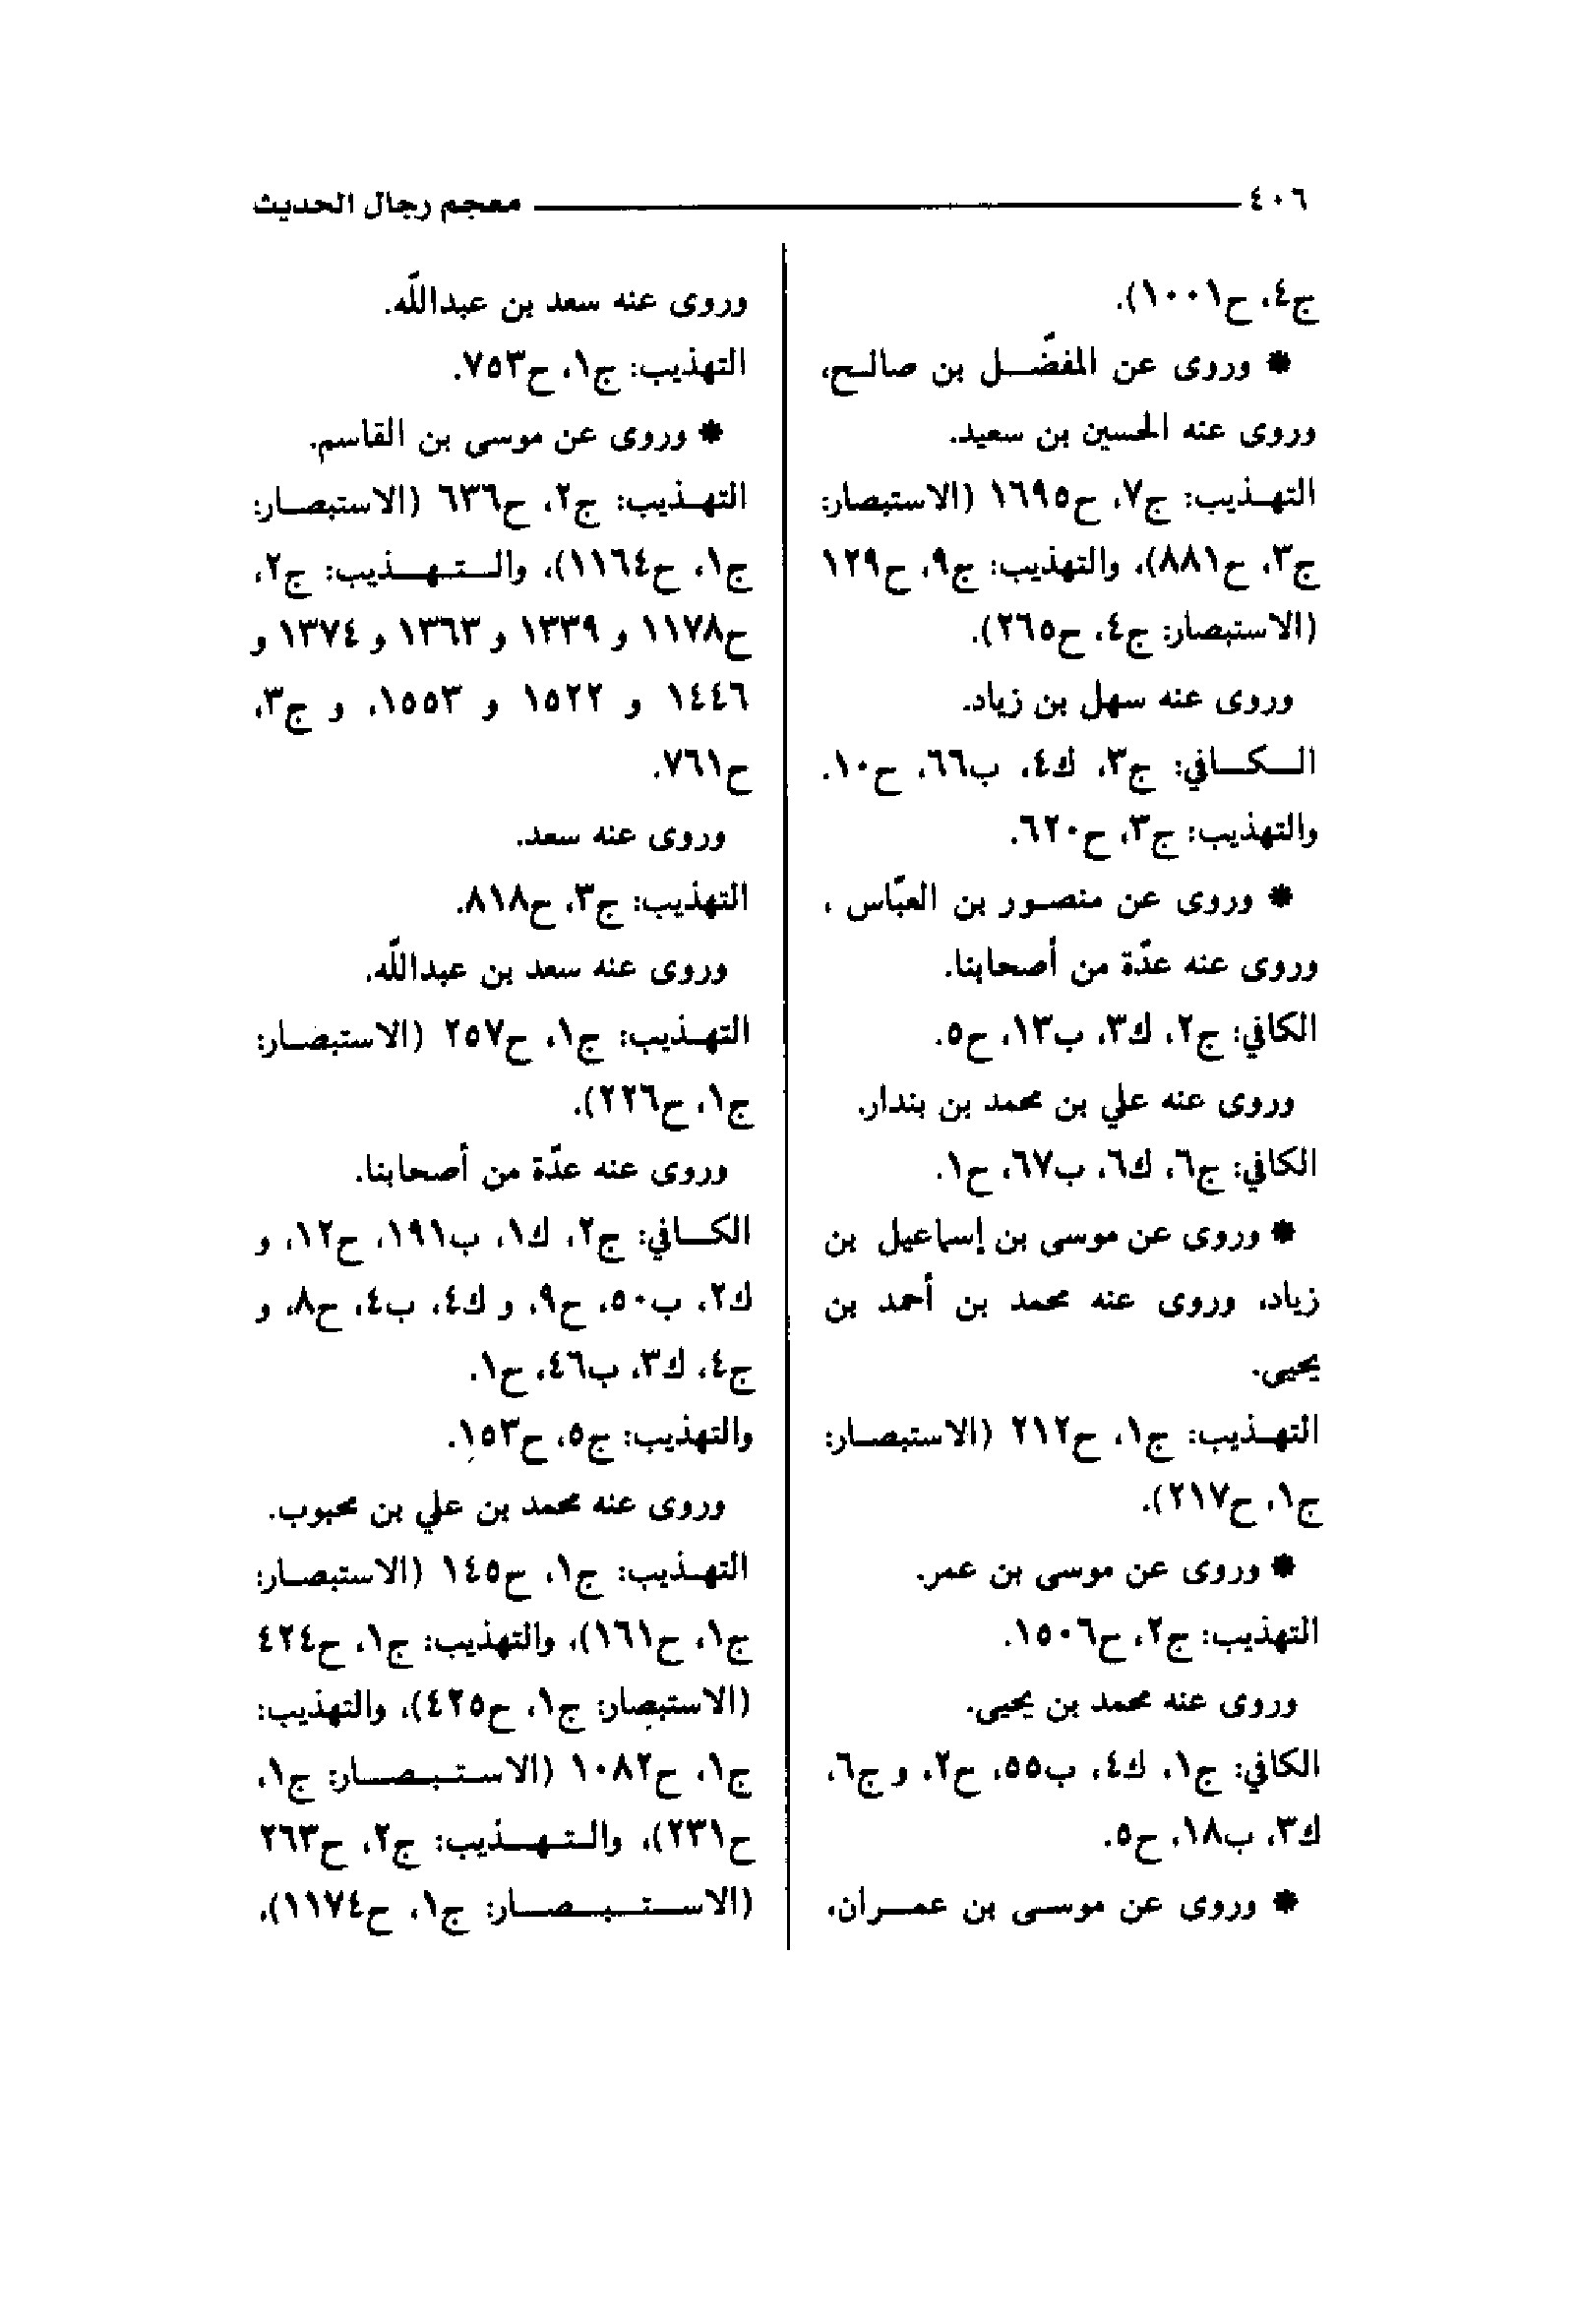 ٤٠٦ معجم رجال الحديث
ج٤، ح١٠٠١).
* وروى عن المفضّل بن صالح،
وروى عنه الحسين بن سعيد.
التهذيب: ج٧، ح١٦٩٥ (الاستبصار:
ج٣، ح٨٨١)، والتهذيب: ج٩، ح١٢٩
(الاستبصار: ج٤، ح٢٦٥).
وروى عنه سهل بن زياد.
الكافي: ج٣، ك٤، ب٦٦، ح١٠.
والتهذيب: ج٣، ح٦٢٠.
* وروى عن منصور بن العبّاس ،
وروى عنه عدّة من أصحابنا.
الكافي: ج٢، ك٣، ب١٣، ح٥.
وروى عنه علي بن محمد بن بندار.
الكافي: ج٦، ك٦، ب٦٧، ح١.
* وروى عن موسى بن إسماعيل بن
زياد، وروى عنه محمد بن أحمد بن
يحيى.
التهذيب: ج١، ح٢١٢ (الاستبصار:
ج١، ح٢١٧).
* وروى عن موسى بن عمر.
التهذيب: ج٢، ح١٥٠٦.
وروى عنه محمد بن يحيى.
الكافي: ج١، ك٤، ب٥٥، ح٢، و ج٦،
ك٣، ب١٨، ح٥.
* وروى عن موسى بن عمران،
وروى عنه سعد بن عبداللّه.
التهذيب: ج١، ح٧٥٣.
* وروى عن موسى بن القاسم.
التهذيب: ج٢، ح٦٣٦ (الاستبصار:
ج١، ح١١٦٤)، والتهذيب: ج٢،
ح١١٧٨ و ١٣٣٩ و ١٣٦٣ و ١٣٧٤ و
١٤٤٦ و ١٥٢٢ و ١٥٥٣، و ج٣،
ح٧٦١.
وروى عنه سعد.
التهذيب: ج٣، ح٨١٨.
وروى عنه سعد بن عبداللّه.
التهذيب: ج١، ح٢٥٧ (الاستبصار:
ج١، ح٢٢٦).
وروى عنه عدّة من أصحابنا.
الكافي: ج٢، ك١، ب١٩١، ح١٢، و
ك٢، ب٥٠، ح٩، و ك٤، ب٤، ح٨، و
ج٤، ك٣، ب٤٦، ح١.
والتهذيب: ج٥، ح١٥٣.
وروى عنه محمد بن علي بن محبوب.
التهذيب: ج١، ح١٤٥ (الاستبصار:
ج١، ح١٦١)، والتهذيب: ج١، ح٤٢٤
(الاستبصار: ج١، ح٤٢٥)، والتهذيب:
ج١، ح١٠٨٢ (الاستبصار: ج١،
ح٢٣١)، والتهذيب: ج٢، ح٢٦٣
(الاستبصار: ج١، ح١١٧٤)،